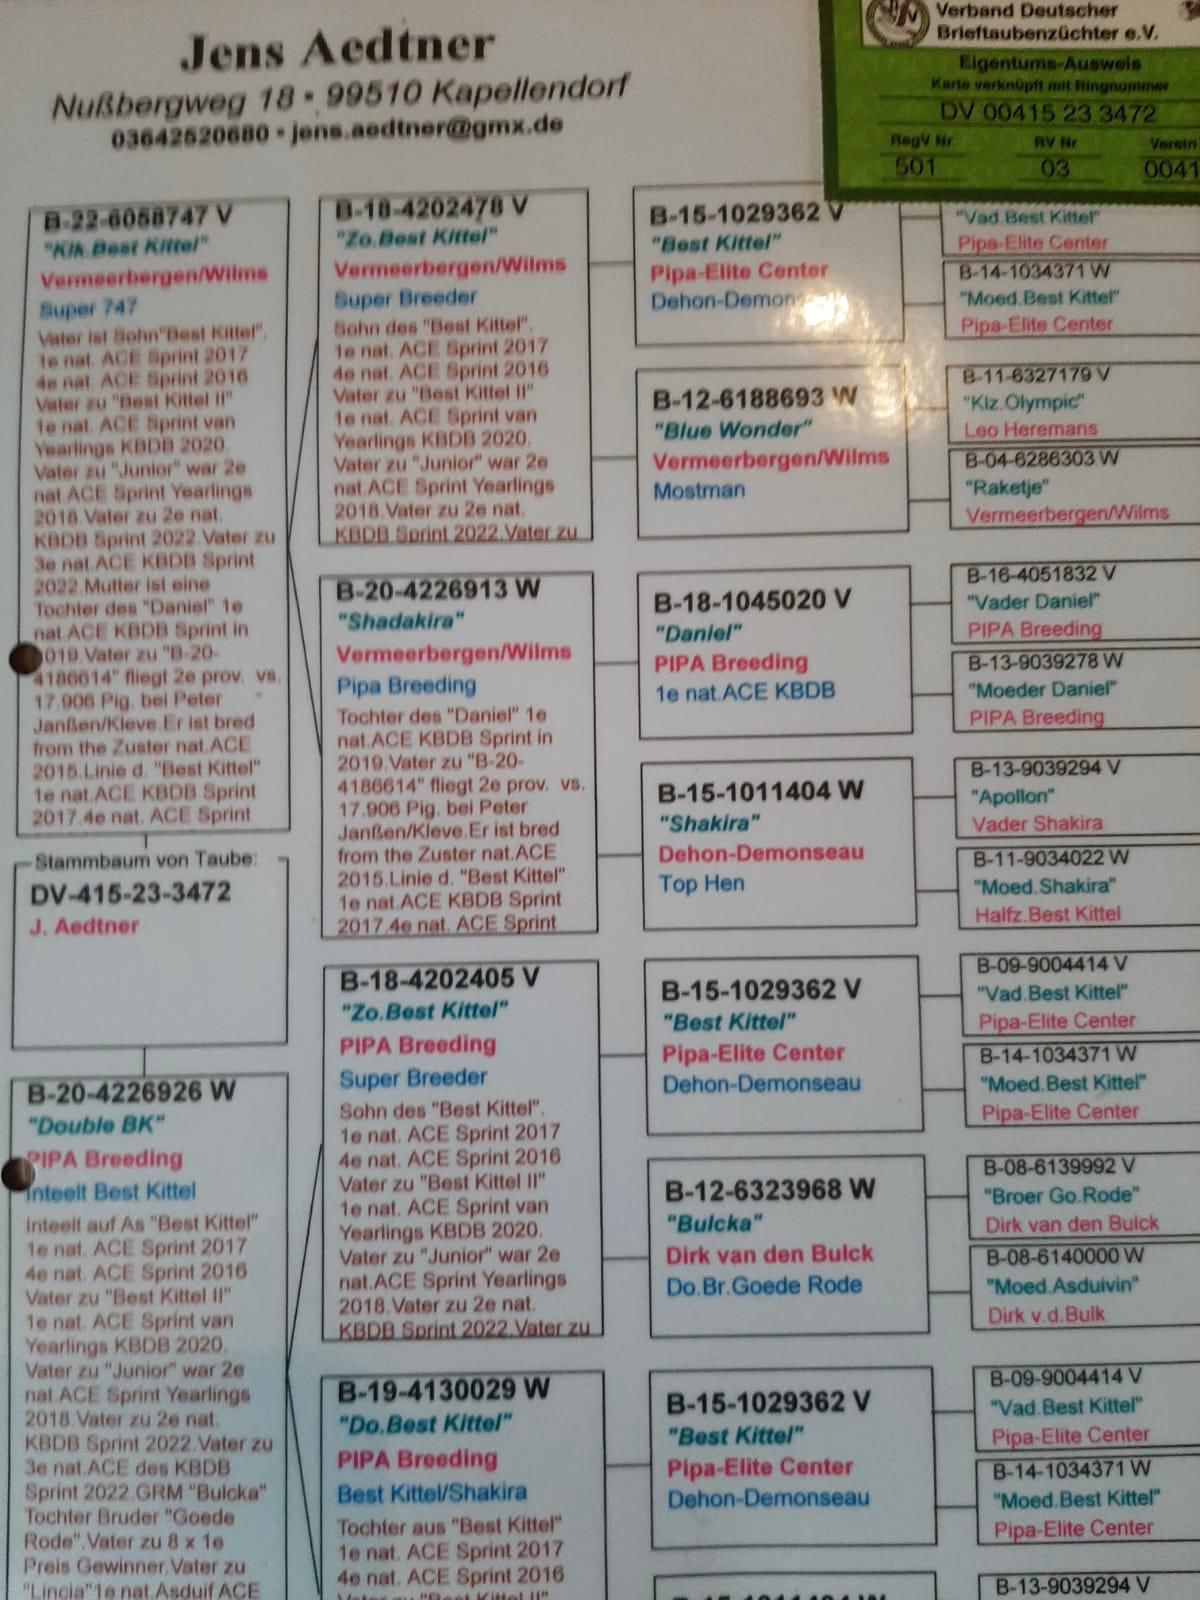 Jens Aedtner
Nußbergweg 18 • 99510 Kapellendorf
03642520680 • jens.aedtner@gmx.de
Verband Deutscher
Brieftaubenzüchter e.V.
Eigentums-Ausweis
Karte verknüpft mit Ringnummer
DV 00415 23 3472
RegV Nr
RV Nr
Verein
501
03
0041
B-22-6058747 V
"Klk.Best Kittel"
Vermeerbergen/Wilms
Super 747
Vater ist Sohn"Best Kittel".
1e nat. ACE Sprint 2017
4e nat. ACE Sprint 2016
Vater zu "Best Kittel II"
1e nat. ACE Sprint van
Yearlings KBDB 2020.
Vater zu "Junior" war 2e
nat.ACE Sprint Yearlings
2018.Vater zu 2e nat.
KBDB Sprint 2022.Vater zu
3e nat.ACE KBDB Sprint
2022.Mutter ist eine
Tochter des "Daniel" 1e
nat.ACE KBDB Sprint in
2019.Vater zu "B-20-
4186614" fliegt 2e prov. vs.
17.906 Pig. bei Peter
Janßen/Kleve.Er ist bred
from the Zuster nat.ACE
2015.Linie d. "Best Kittel"
1e nat.ACE KBDB Sprint
2017.4e nat. ACE Sprint
Stammbaum von Taube:
DV-415-23-3472
J. Aedtner
B-20-4226926 W
"Double BK"
PIPA Breeding
Inteelt Best Kittel
Inteelt auf As "Best Kittel"
1e nat. ACE Sprint 2017
4e nat. ACE Sprint 2016
Vater zu "Best Kittel II"
1e nat. ACE Sprint van
Yearlings KBDB 2020.
Vater zu "Junior" war 2e
nat.ACE Sprint Yearlings
2018.Vater zu 2e nat.
KBDB Sprint 2022.Vater zu
3e nat.ACE des KBDB
Sprint 2022.GRM "Bulcka"
Tochter Bruder "Goede
Rode".Vater zu 8 x 1e
Preis Gewinner.Vater zu
"Lincia"1e nat.Asduif ACE
B-18-4202478 V
"Zo.Best Kittel"
Vermeerbergen/Wilms
Super Breeder
Sohn des "Best Kittel".
1e nat. ACE Sprint 2017
4e nat. ACE Sprint 2016
Vater zu "Best Kittel II"
1e nat. ACE Sprint van
Yearlings KBDB 2020.
Vater zu "Junior" war 2e
nat.ACE Sprint Yearlings
2018.Vater zu 2e nat.
KBDB Sprint 2022.Vater zu
B-20-4226913 W
"Shadakira"
Vermeerbergen/Wilms
Pipa Breeding
Tochter des "Daniel" 1e
nat.ACE KBDB Sprint in
2019.Vater zu "B-20-
4186614" fliegt 2e prov. vs.
17.906 Pig. bei Peter
Janßen/Kleve.Er ist bred
from the Zuster nat.ACE
2015.Linie d. "Best Kittel"
1e nat.ACE KBDB Sprint
2017.4e nat. ACE Sprint
B-18-4202405 V
"Zo.Best Kittel"
PIPA Breeding
Super Breeder
Sohn des "Best Kittel".
1e nat. ACE Sprint 2017
4e nat. ACE Sprint 2016
Vater zu "Best Kittel II"
1e nat. ACE Sprint van
Yearlings KBDB 2020.
Vater zu "Junior" war 2e
nat.ACE Sprint Yearlings
2018.Vater zu 2e nat.
KBDB Sprint 2022.Vater zu
B-19-4130029 W
"Do.Best Kittel"
PIPA Breeding
Best Kittel/Shakira
Tochter aus "Best Kittel"
1e nat. ACE Sprint 2017
4e nat. ACE Sprint 2016
Vater zu "Best Kittel II"
B-15-1029362 V
"Best Kittel"
Pipa-Elite Center
B-12-6188693 W
"Blue Wonder"
Vermeerbergen/Wilms
Mostman
B-18-1045020 V
"Daniel"
PIPA Breeding
1e nat.ACE KBDB
B-15-1011404 W
"Shakira"
Dehon-Demonseau
Top Hen
B-15-1029362 V
"Best Kittel"
Pipa-Elite Center
Dehon-Demonseau
B-12-6323968 W
"Bulcka"
Dirk van den Bulck
Do.Br.Goede Rode
B-15-1029362 V
"Best Kittel"
Pipa-Elite Center
Dehon-Demonseau
"Vad.Best Kittel"
Pipa-Elite Center
B-14-1034371 W
"Moed.Best Kittel"
Pipa-Elite Center
B-11-6327179 V
"Klz.Olympic"
Leo Heremans
B-04-6286303 W
"Raketje"
Vermeerbergen/Wilms
B-16-4051832 V
"Vader Daniel"
PIPA Breeding
B-13-9039278 W
"Moeder Daniel"
PIPA Breeding
B-13-9039294 V
"Apollon"
Vader Shakira
B-11-9034022 W
"Moed.Shakira"
Halfz.Best Kittel
B-09-9004414 V
"Vad.Best Kittel"
Pipa-Elite Center
B-14-1034371 W
"Moed.Best Kittel"
Pipa-Elite Center
B-08-6139992 V
"Broer Go.Rode"
Dirk van den Bulck
B-08-6140000 W
"Moed.Asduivin"
Dirk v.d.Bulk
B-09-9004414 V
"Vad.Best Kittel"
Pipa-Elite Center
B-14-1034371 W
"Moed.Best Kittel"
Pipa-Elite Center
B-13-9039294 V